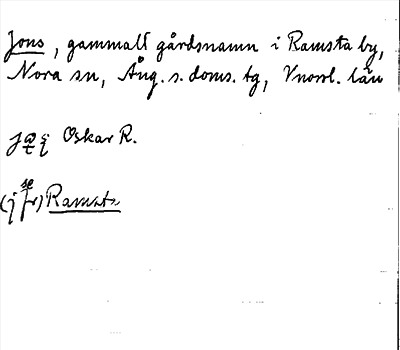 Jons, gammalt gårdsnamn i Ramsta by,
Nora sn, Ång. s. doms. tg, Vnorrl. län
Oskar R.
se
(jfr) Ramsta